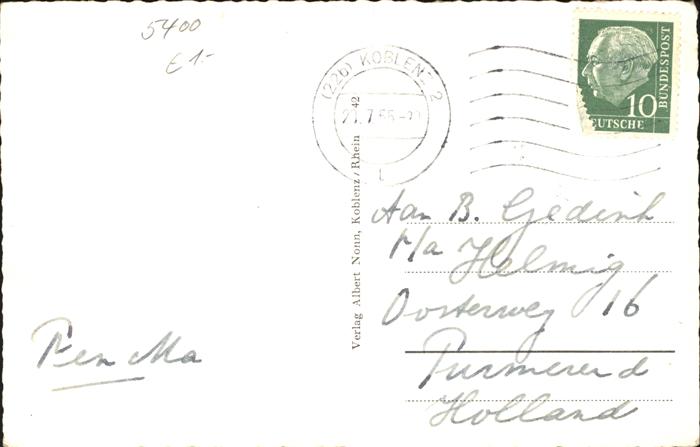 5400
€ 1.-
(22b) KOBLENZ 2
21.7.55-
10
BUNDESPOST
DEUTSCHE
Verlag Albert Nonn, Koblenz/Rhein 42
Aan B.
p/a Helmig
Oosterweg 16
Purmerend
Holland
P en Ma